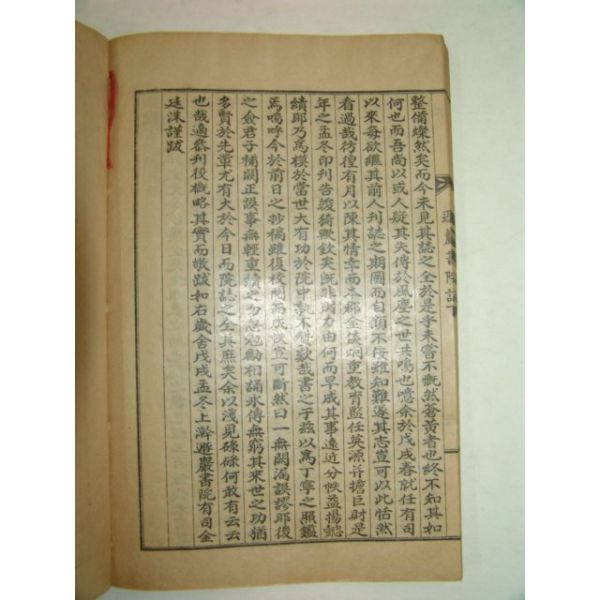 整備燦然矣而今未見其誌之全於是乎未嘗不慨然蒼黃者也終不知其如
何也而吾尚以或人疑其失傳於風塵之世共鳴也噫余於戊戌春就任有司
以來每欲繼其前人刊誌之期圖而自顧不侫雖知難遂其志豈可以此恬然
看過哉彷徨有月以陳其情幸而本郡金傒炯重敎育監任英源幷擔巨財是
年之孟冬印刊告竣猗歟欽矣旣非時力由何而早成其事遠近分帙益揚懿
績耶乃爲模於當世大有功於院中孰不優歎哉書之于玆以爲丁寧之照鑑
焉嗚呼今於前日之抄稿雖復校閱而成帙豈可斷然曰一無闕漏誤謬耶後
之僉君子補闕正誤事無輕重續之勿怠勉勵相誦永傳無窮其來世之功猶
多賢於先輩尤有大於今日而院誌之全其庶矣余以淺見碌碌何敢有云云
也哉適當刊役槪略其實而敬跋如右歲舍戊戌孟冬上澣遯巖書院有司金
廷洙謹跋
遯巖書院誌下